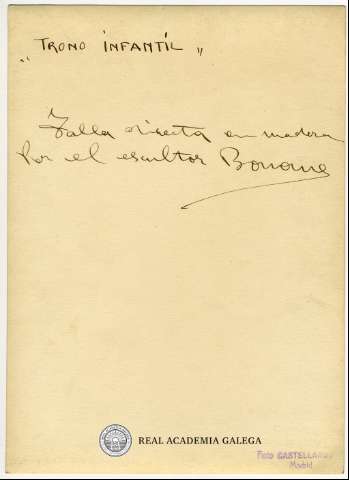 "TRONO INFANTIL"
Talla directa en madera
Por el escultor Bonome
REAL ACADEMIA GALEGA
Foto CASTELLANOS
Madrid